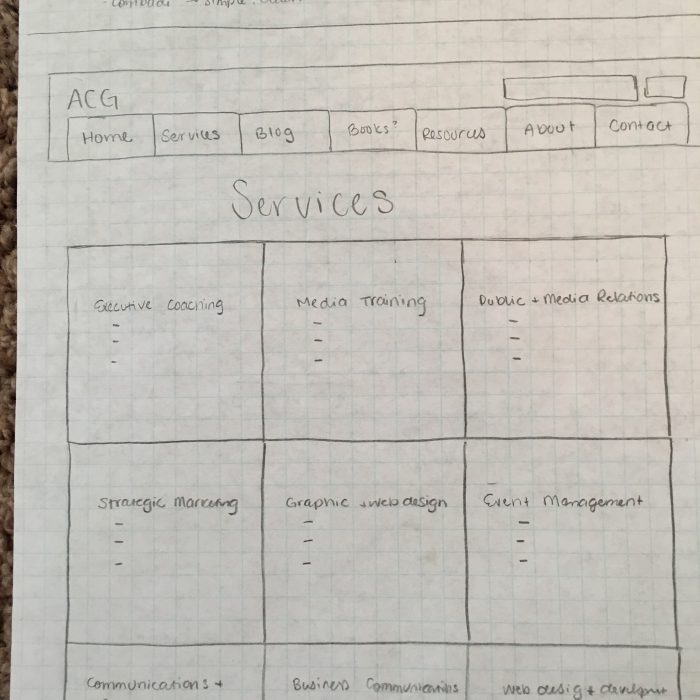 - contact → simple,
ACG
Home Services Blog Books? Resources About Contact
Services
Executive Coaching Media Training Public + Media Relations
Strategic Marketing Graphic + web design Event Management
Communications + Business Communications Web desig + developmt